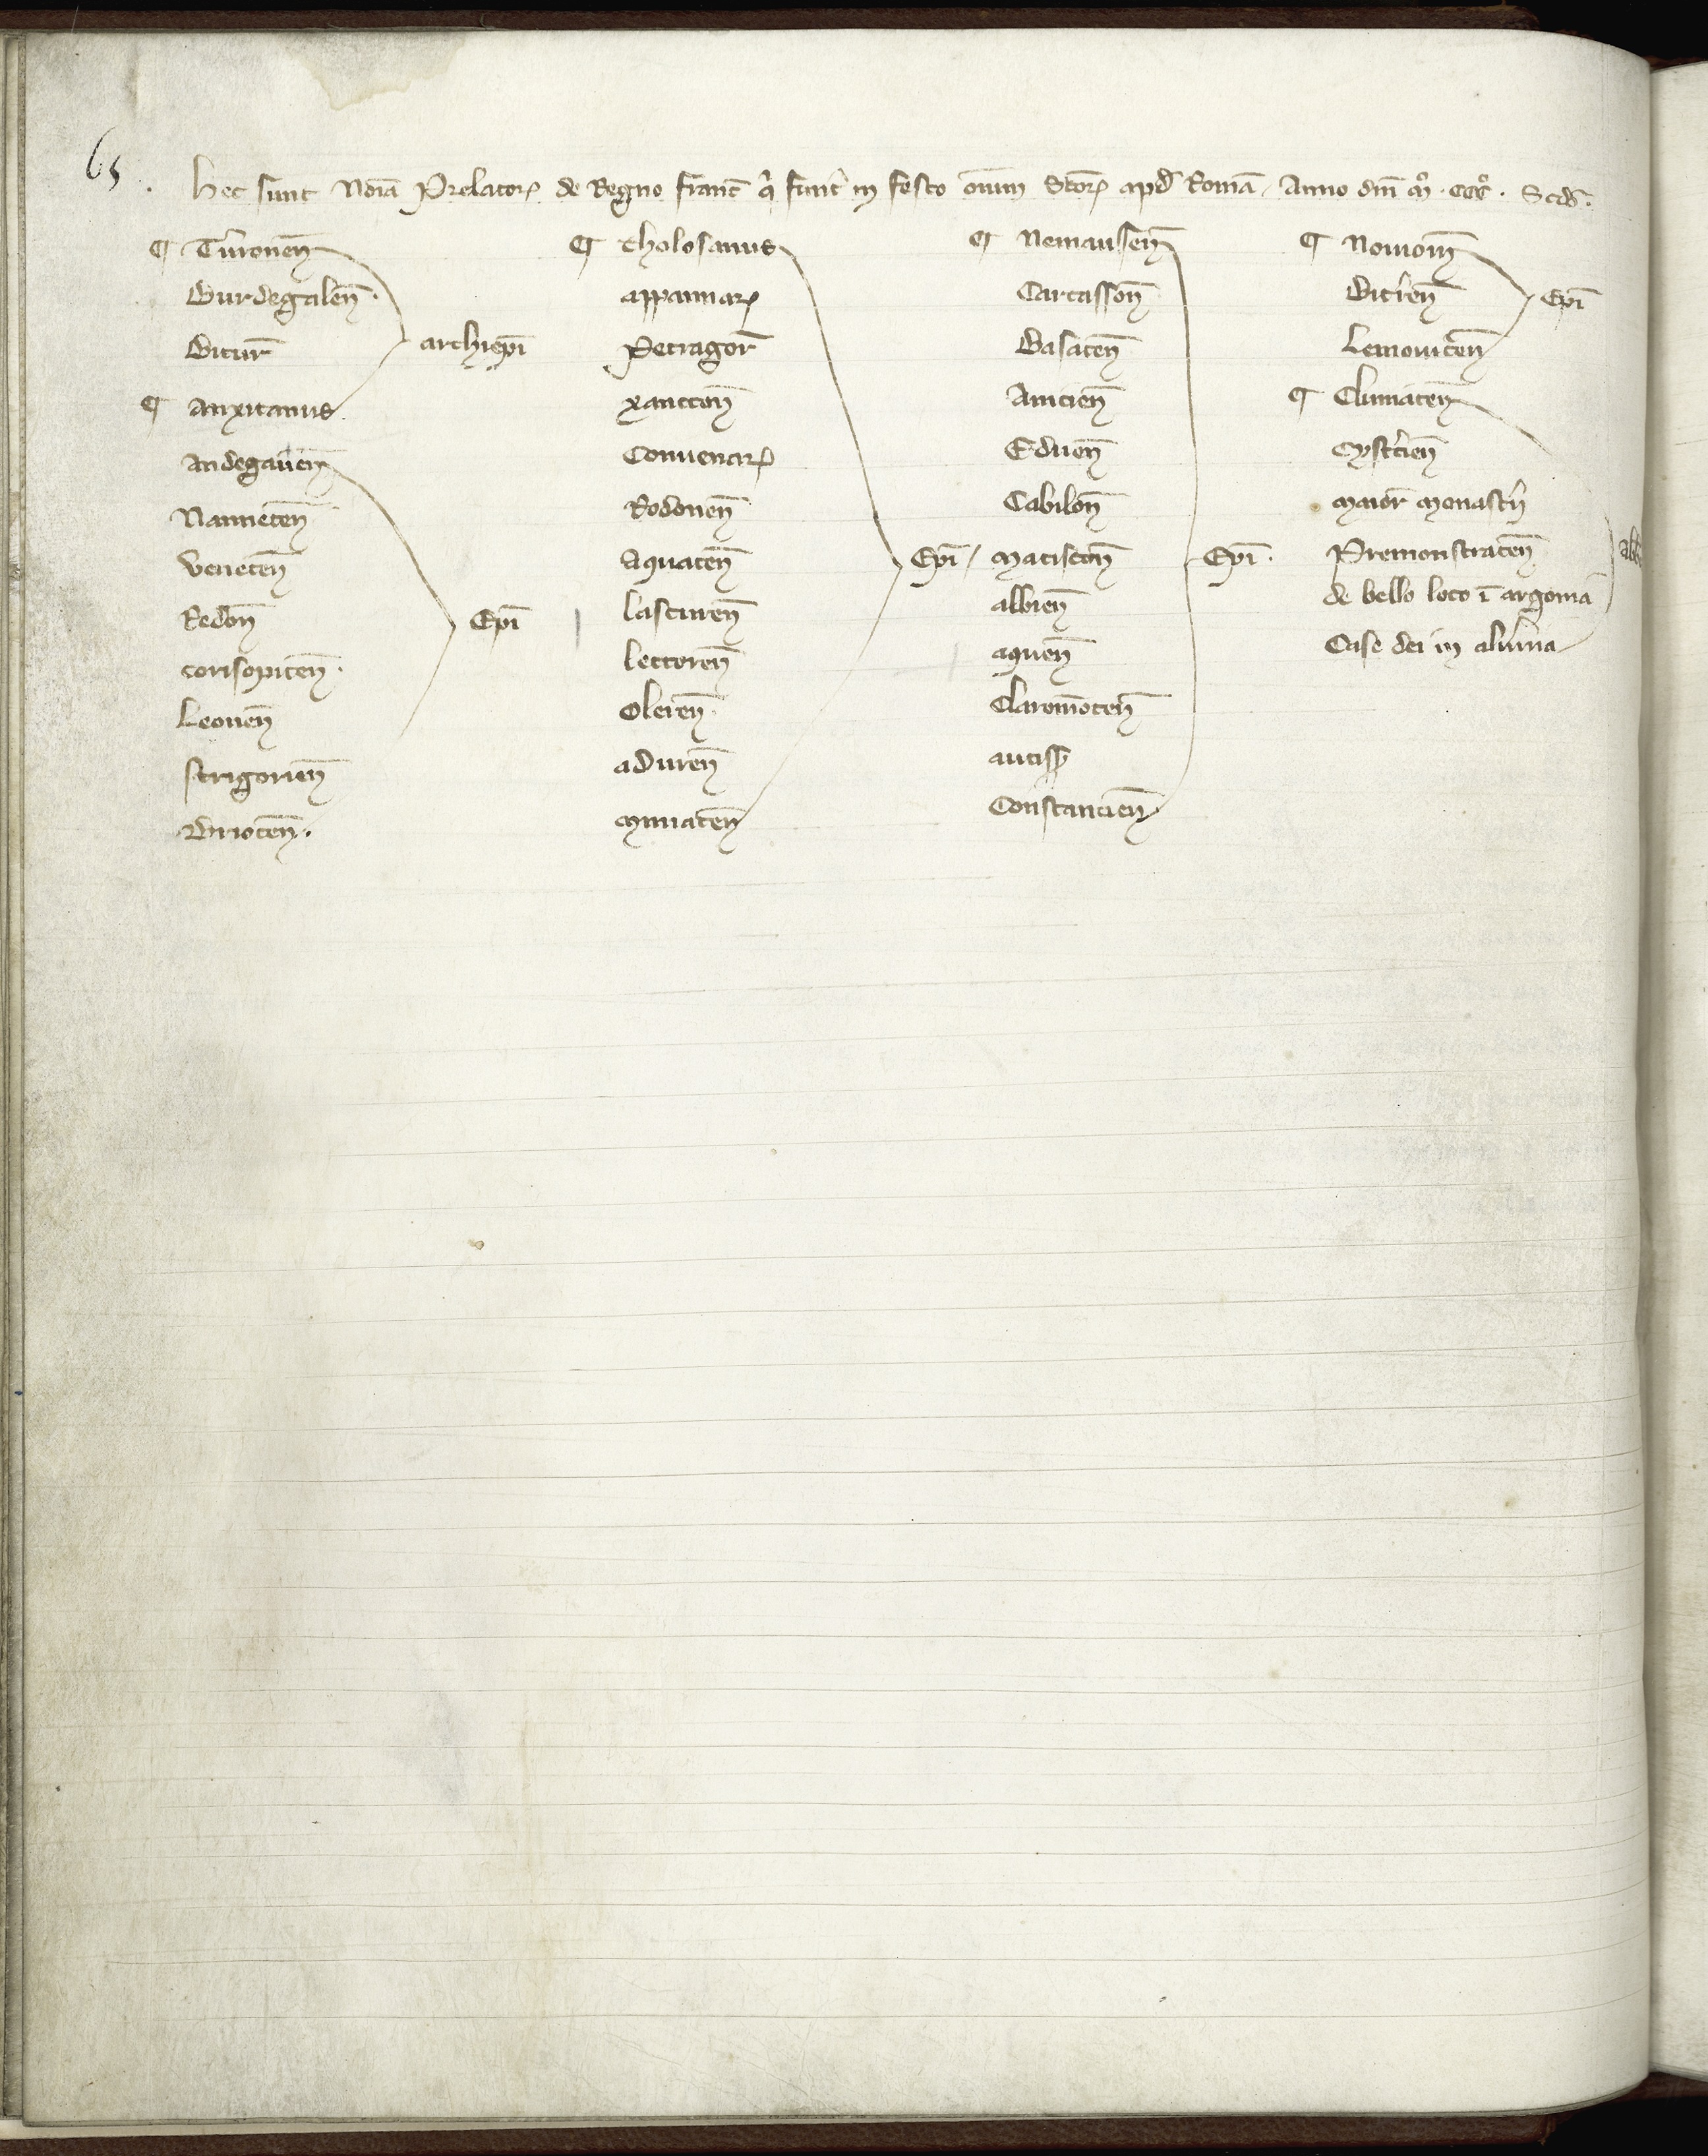 65.
Hec sunt Noīa Prelatorꝝ de Regno francͥ qͥ fūnt in festo oīum Sctorꝝ apd̄ Romā Anno dn̄i mͦ. cccͦ. Scd̄o.
¶ Turonen̄
Burdegalen̄.
Bitur̄
¶ Auxitanus
archiepī
Andegaven̄
Nanneten̄
Veneten̄
Redon̄
corisopiten̄.
Leonen̄
Trigorien̄
Brioten̄.
Epī
¶ tholosanus
appamiarꝝ
Petragor̄
xancton̄
Convenarꝝ
Rodonen̄
Aquaten̄
lascuren̄
lectoren̄
Oleren̄
aduren̄
mimaten̄
Epī
¶ Nemausen̄
Carcasson̄
Basaten̄
Anicien̄
Eduen̄
Cabilon̄
matiscon̄
albien̄
aquen̄
Claromōten̄
autiss̄
Constancien̄
Epī.
¶ Noviom̄
Biter̄en̄
Lemovicen̄
Epī
¶ Cluniacen̄
Cysterc̄ien̄
maior̄ monastͥi
Premonstraten̄
de bello loco ī argonia
Case dei in alvernia
abb